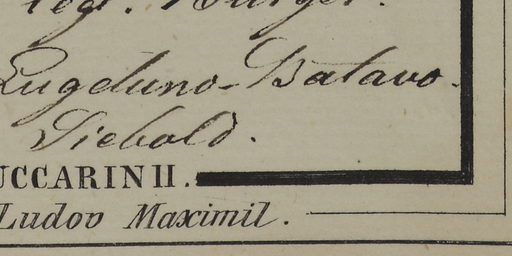 legt. Bürger.
Lugduno-Batavo.
Siebold.
UCCARINII.
Ludov Maximil.